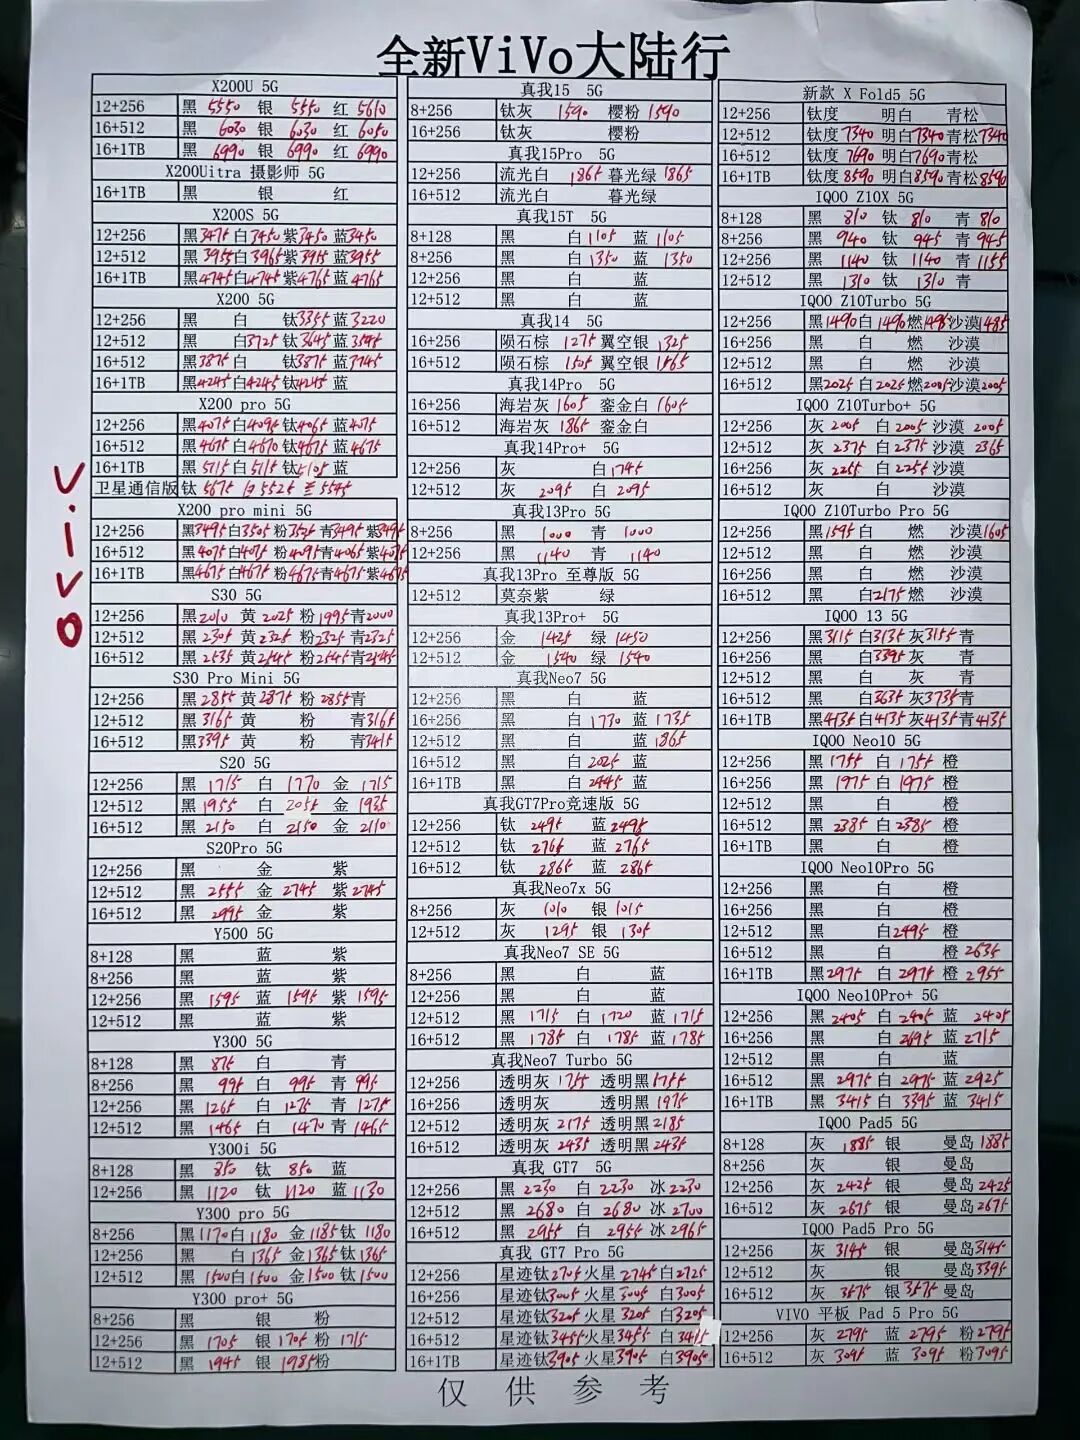 全新ViVo大陆行
ViVo
X200U 5G
12+256 黑 5550 银 5550 红 5610
16+512 黑 6030 银 6030 红 6050
16+1TB 黑 6990 银 6990 红 6990
X200Uitra 摄影师 5G
16+1TB 银 红
X200S 5G
12+256 黑3475 白3450 紫3450 蓝3450
12+512 黑3955 白3965 紫3955 蓝3955
16+1TB 黑4745 白4745 紫4765 蓝4765
X200 5G
12+256 黑 白 钛3355 蓝3220
12+512 黑 白3725 钛3645 蓝3545
16+512 黑3875 白 钛3875 蓝3745
16+1TB 黑4245 白4245 钛4245 蓝
X200 pro 5G
12+256 黑4075 白4095 钛4065 蓝4075
16+512 黑4675 白4670 钛4675 蓝4675
16+1TB 黑5115 白5115 钛5105 蓝
卫星通信版 钛 5675 白 5525 5545
X200 pro mini 5G
12+256 黑3495 白3505 粉3525 青3495 紫3495
16+512 黑4075 白4075 粉4095 青4065 紫4075
16+1TB 黑4675 白4675 粉4675 青4675 紫4675
S30 5G
12+256 黑2010 黄 2025 粉 1995 青2000
12+512 黑 2305 黄 2325 粉 2325 青2325
16+512 黑 2535 黄 2545 粉 2545 青2545
S30 Pro Mini 5G
12+256 黑 2855 黄 2875 粉 2855 青
12+512 黑 3165 黄 粉 青3165
16+512 黑3395 黄 粉 青3415
S20 5G
12+256 黑 1715 白 1770 金 1715
12+512 黑 1955 白 2055 金 1935
16+512 黑 2150 白 2150 金 2110
S20Pro 5G
12+256 黑 金 紫
12+512 黑 2555 金 2745 紫 2745
16+512 黑 2995 金 紫
Y500 5G
8+128 黑 蓝 紫
8+256 黑 蓝 紫
12+256 黑 1595 蓝 1595 紫 1595
12+512 黑 蓝 紫
Y300 5G
8+128 黑 875 白 青
8+256 黑 995 白 995 青 995
12+256 黑 1265 白 1275 青 1275
12+512 黑 1465 白 1470 青 1465
Y300i 5G
8+128 黑 850 钛 850 蓝
12+256 黑 1120 钛 1120 蓝 1130
Y300 pro 5G
8+256 黑 1170 白 1180 金 1185 钛 1180
12+256 黑 白 1365 金 1365 钛 1365
12+512 黑 1500 白 1500 金 1500 钛 1500
Y300 pro+ 5G
8+256 黑 银 粉
12+256 黑 1705 银 1705 粉 1715
12+512 黑 1945 银 1985 粉
真我15 5G
8+256 钛灰 1590 樱粉 1590
16+256 钛灰 樱粉
真我15Pro 5G
12+256 流光白 1865 暮光绿 1865
16+512 流光白 暮光绿
真我15T 5G
8+128 黑 白 1105 蓝 1105
8+256 黑 白 1350 蓝 1350
12+256 黑 白 蓝
12+512 黑 白 蓝
真我14 5G
16+256 陨石棕 1275 翼空银 1325
16+512 陨石棕 1505 翼空银 1465
真我14Pro 5G
16+256 海岩灰 1605 銮金白 1605
16+512 海岩灰 1865 銮金白
真我14Pro+ 5G
12+256 灰 白 1745
12+512 灰 2095 白 2095
真我13Pro 5G
8+256 黑 1000 青 1000
12+256 黑 1140 青 1140
真我13Pro 至尊版 5G
12+512 莫奈紫 绿
真我13Pro+ 5G
12+256 金 1425 绿 1450
12+512 金 1540 绿 1540
真我Neo7 5G
12+256 黑 白 蓝
16+256 黑 白 1730 蓝 1735
12+512 黑 白 蓝 1865
16+512 黑 白 2025 蓝
16+1TB 黑 白 2445 蓝
真我GT7Pro竞速版 5G
12+256 钛 2495 蓝 2495
12+512 钛 2765 蓝 2765
16+512 钛 2865 蓝 2865
真我Neo7x 5G
8+256 灰 1010 银 1015
12+512 灰 1295 银 1305
真我Neo7 SE 5G
8+256 黑 白 蓝
12+256 黑 白 蓝
12+512 黑 1715 白 1720 蓝 1715
16+512 黑 1785 白 1785 蓝 1785
真我Neo7 Turbo 5G
12+256 透明灰 1755 透明黑 1755
16+256 透明灰 透明黑 1975
12+512 透明灰 2175 透明黑 2185
16+512 透明灰 2435 透明黑 2435
真我 GT7 5G
12+256 黑 2230 白 2230 冰 2230
12+512 黑 2680 白 2680 冰 2700
16+512 黑 2955 白 2955 冰 2965
真我 GT7 Pro 5G
12+256 星迹钛2705 火星 2745 白2725
16+256 星迹钛3005 火星 3005 白3005
12+512 星迹钛3205 火星 3205 白3205
16+512 星迹钛3455 火星 3455 白 3415
16+1TB 星迹钛3905 火星 3905 白3905
新款 X Fold5 5G
12+256 钛度 明白 青松
12+512 钛度 7340 明白 7340 青松 7340
16+512 钛度 7690 明白 7690 青松
16+1TB 钛度 8590 明白 8590 青松 8590
IQOO Z10X 5G
8+128 黑 810 钛 810 青 810
8+256 黑 940 钛 945 青 945
12+256 黑 1140 钛 1140 青 1155
12+512 黑 1310 钛 1310 青
IQOO Z10Turbo 5G
12+256 黑1490 白 1490 燃1495 沙漠1485
16+256 黑 白 燃 沙漠
12+512 黑 白 燃 沙漠
16+512 黑2025 白 2025 燃2005 沙漠2005
IQOO Z10Turbo+ 5G
12+256 灰 2005 白 2005 沙漠 2005
12+512 灰 2375 白 2375 沙漠 2365
16+256 灰 2255 白 2255 沙漠
16+512 灰 白 沙漠
IQOO Z10Turbo Pro 5G
12+256 黑1595 白 燃 沙漠1605
12+512 黑 白 燃 沙漠
16+256 黑 白 燃 沙漠
16+512 黑 白2175 燃 沙漠
IQOO 13 5G
12+256 黑3115 白3135 灰3155 青
16+256 黑 白3395 灰 青
12+512 黑 白 灰 青
16+512 黑 白3635 灰3735 青
16+1TB 黑4135 白4135 灰4135 青4135
IQOO Neo10 5G
12+256 黑 1755 白 1755 橙
16+256 黑 1975 白 1975 橙
12+512 黑 白 橙
16+512 黑 2385 白 2385 橙
16+1TB 黑 白 橙
IQOO Neo10Pro 5G
12+256 黑 白 橙
16+256 黑 白 橙
12+512 黑 白2495 橙
16+512 黑 白 橙 2635
16+1TB 黑2975 白 2975 橙 2955
IQOO Neo10Pro+ 5G
12+256 黑 2405 白 2405 蓝 2405
16+256 黑 白 2695 蓝 2715
12+512 黑 白 蓝
16+512 黑 2975 白 2975 蓝 2925
16+1TB 黑 3415 白 3395 蓝 3415
IQOO Pad5 5G
8+128 灰 1885 银 曼岛 1885
8+256 灰 银 曼岛
12+256 灰 2425 银 曼岛 2425
16+512 灰 2675 银 曼岛 2675
IQOO Pad5 Pro 5G
12+256 灰 3145 银 曼岛3145
12+512 灰 银 曼岛3395
16+512 灰 3675 银 3675 曼岛
VIVO 平板 Pad 5 Pro 5G
12+256 灰 2795 蓝 2795 粉 2795
16+512 灰 3095 蓝 3095 粉3095
仅供参考